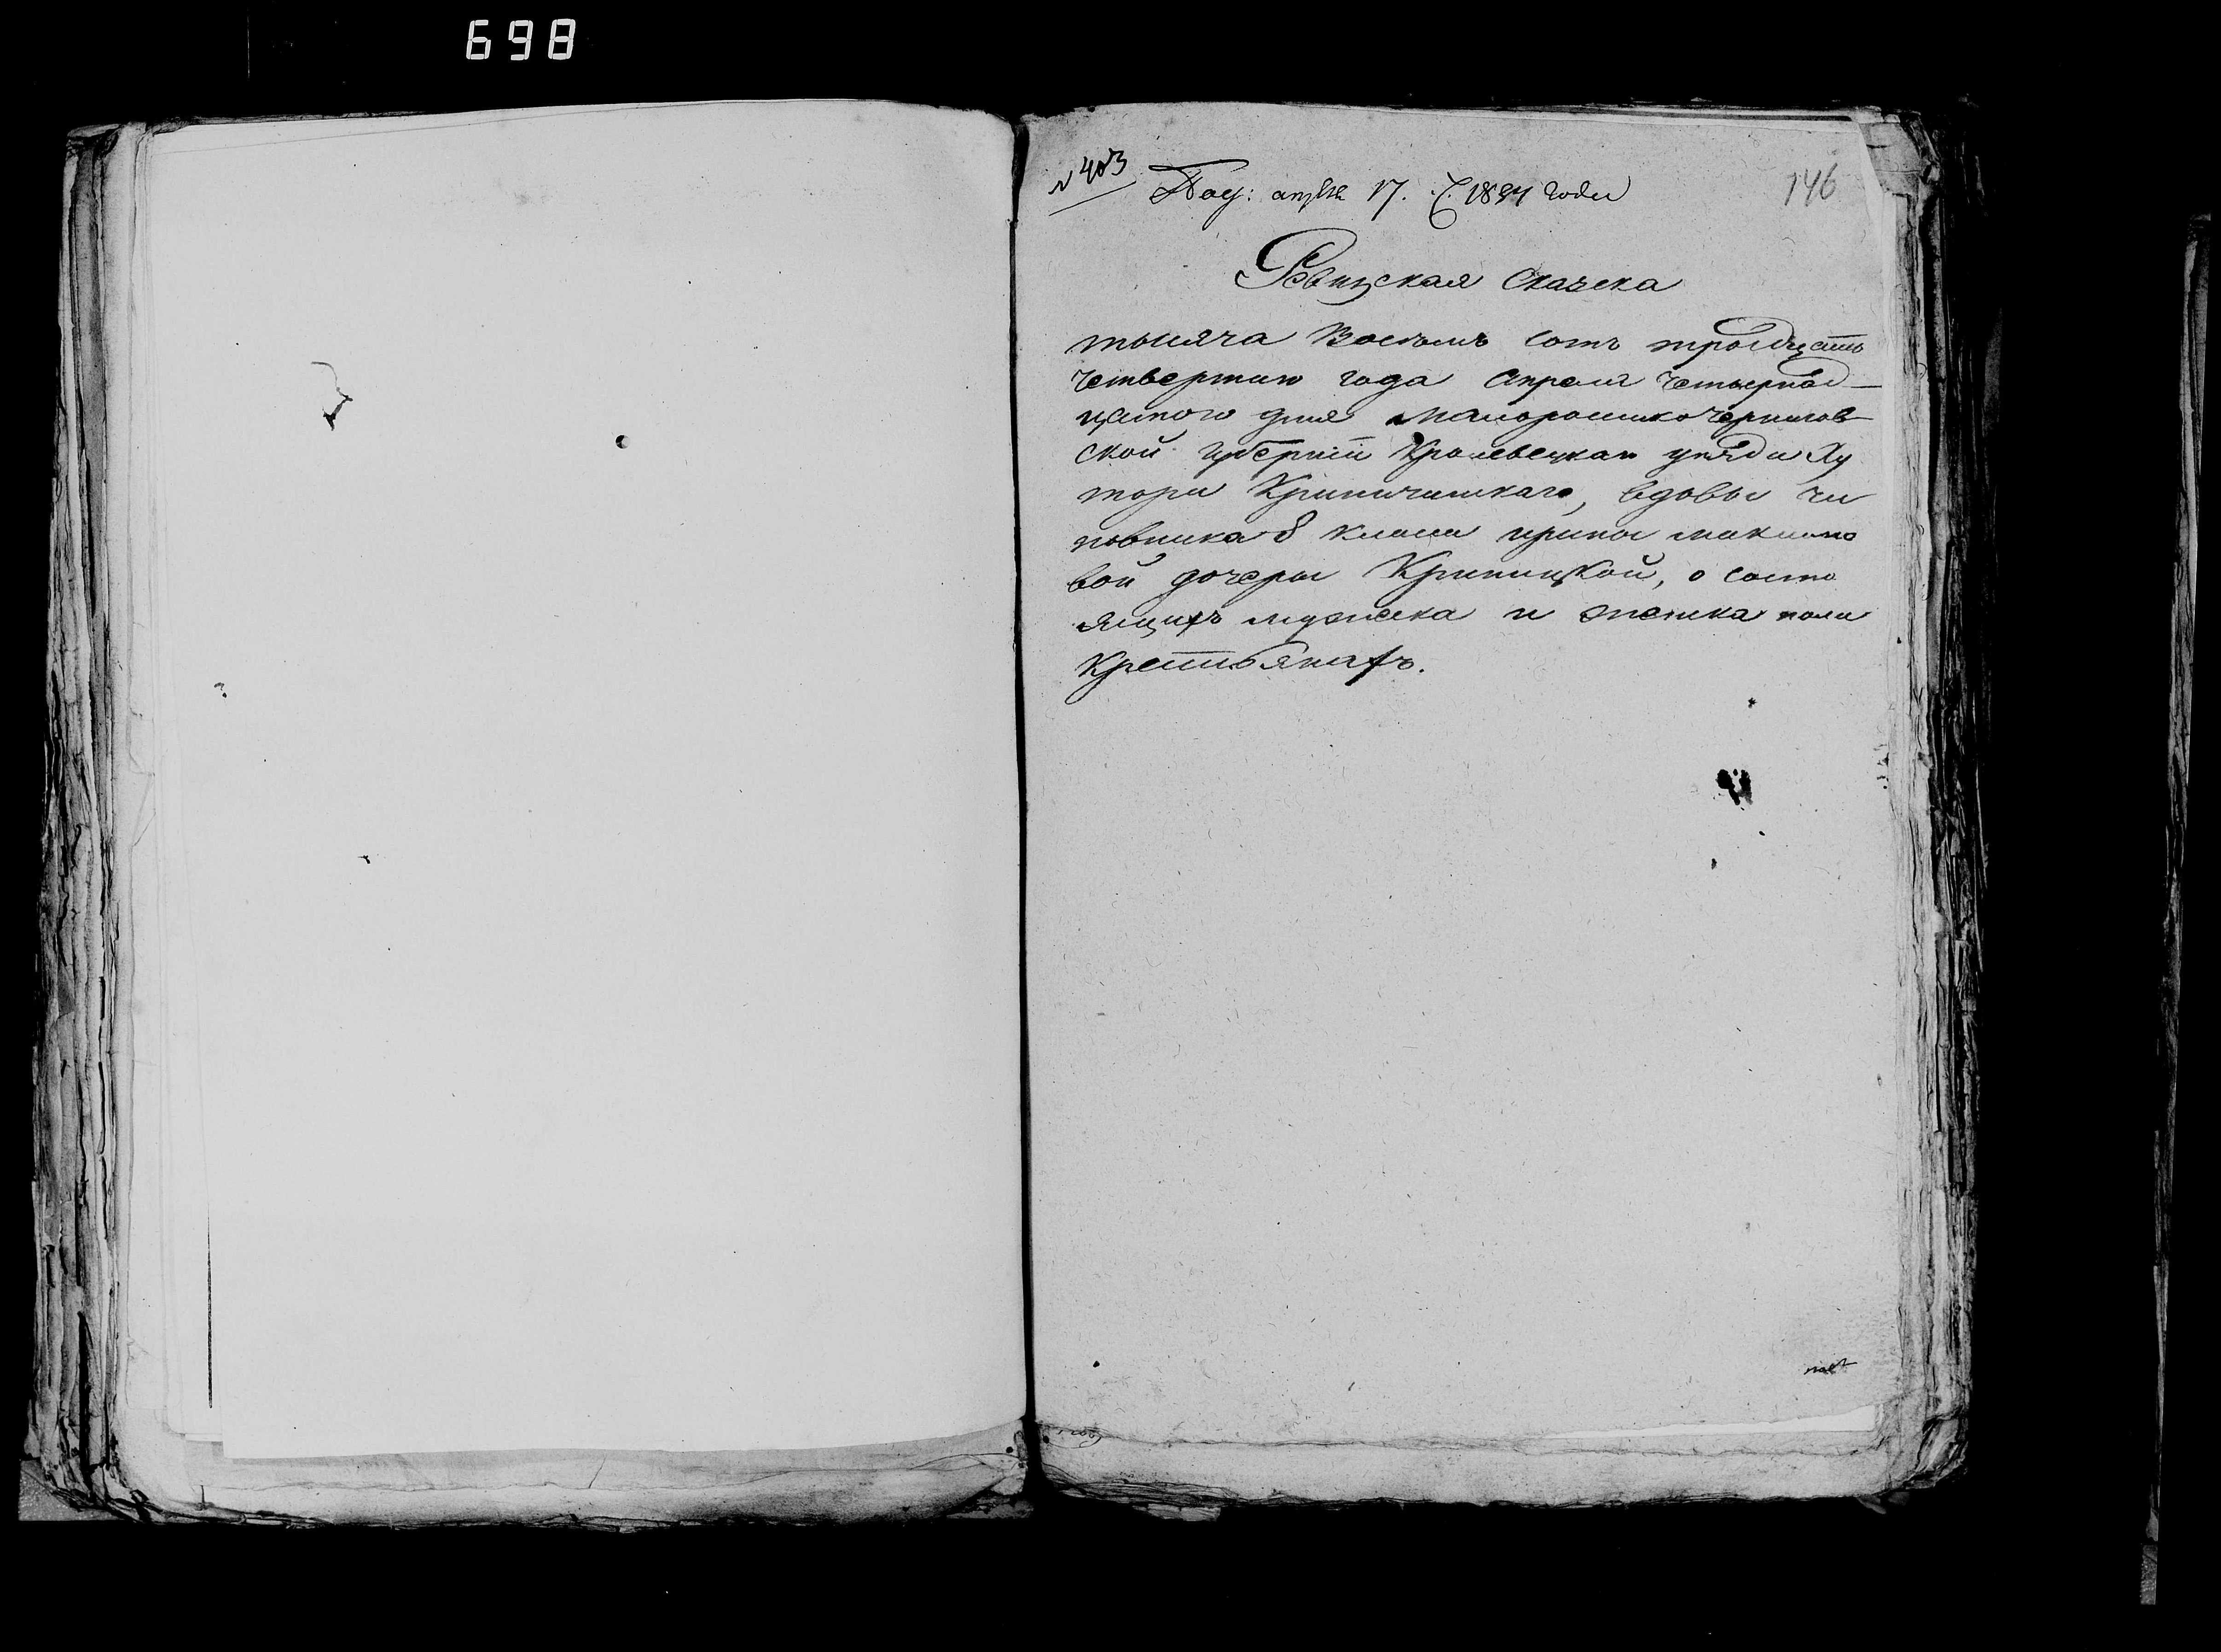 698
№ 403
Под: апреля 17. 1834 года
146
Ревизская сказска
тысяча восемь сотъ тройдцать
четвертаго года апреля четырнад-
цатого дня Малоросийско Чернигов
ской губернїи Кролевецкаго уезда ху
тора Криничанскаго, вдовы чи
новника 8 класа ирины максимо
вой дочеры Криницкой, о состо
ящихъ мужеска и женска пола
крестьянахъ.